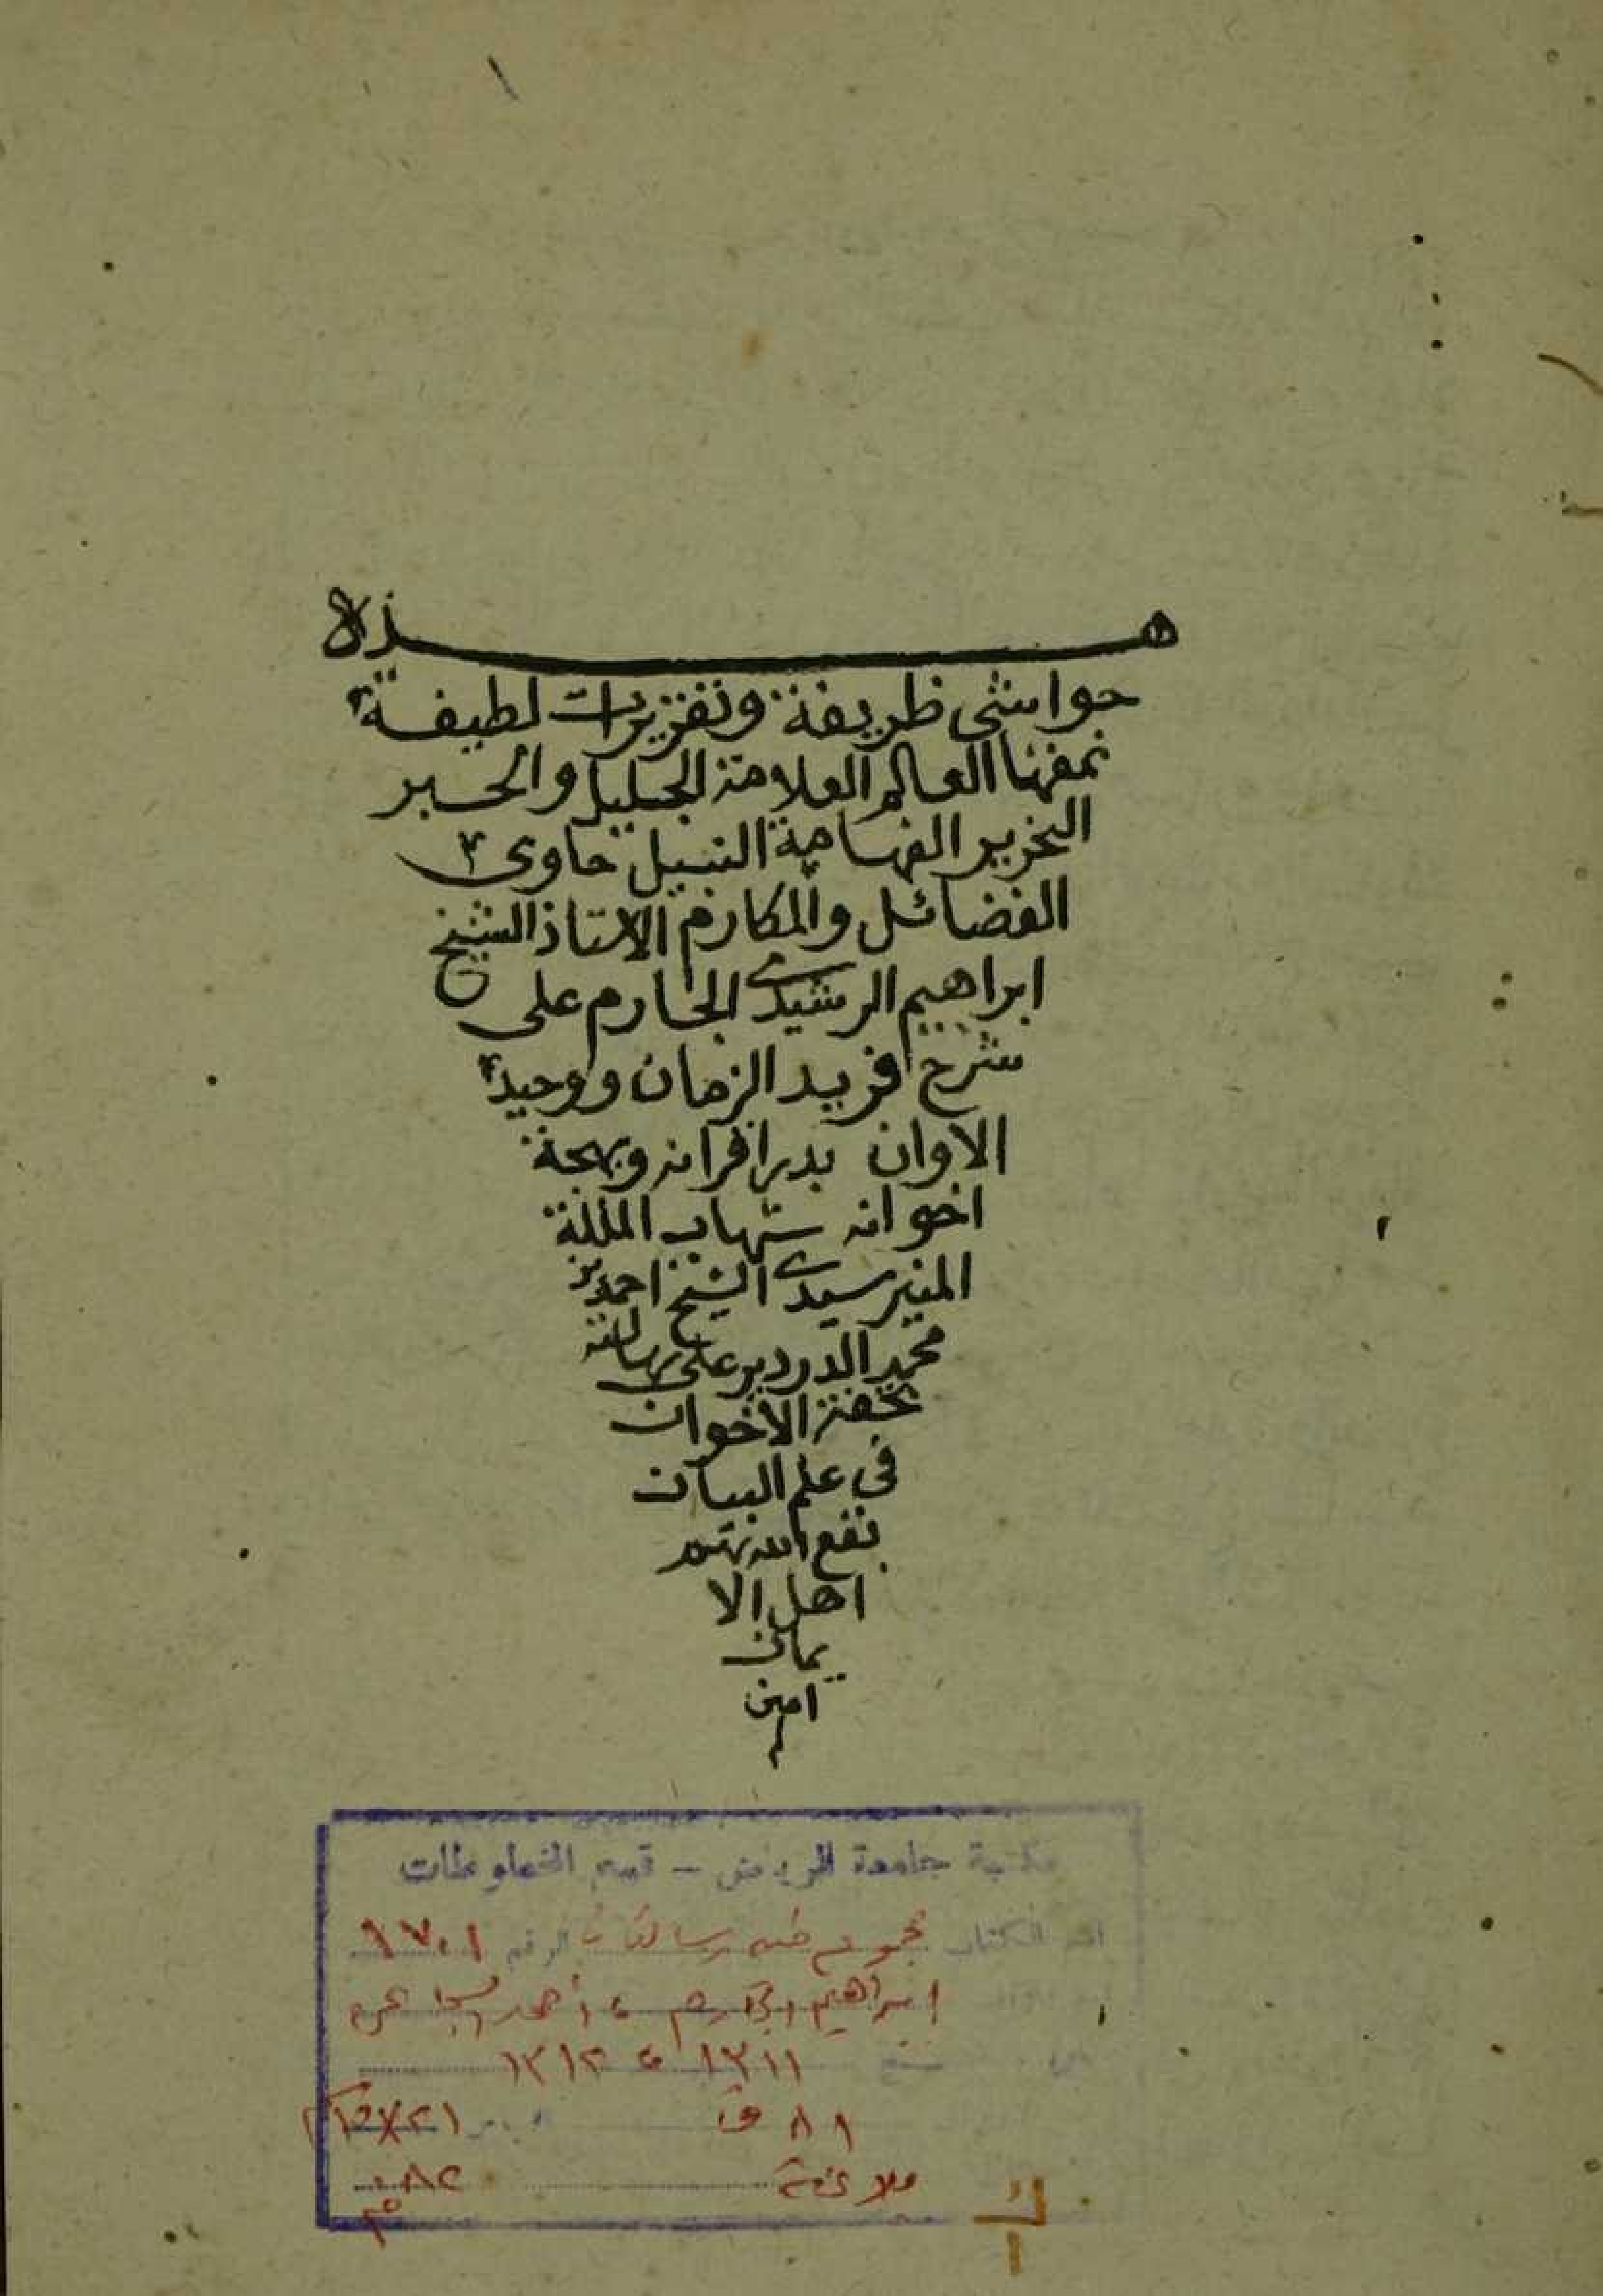 هذه
حواشى ظريفة وتقريرات لطيفة
نمقها العالم العلامة الجليل والحبر
النحرير الفهامة النبيل حاوى
الفضائل والمكارم الاستاذ الشيخ
ابراهيم الرشيدى الجارم على
شرح فريد الزمان ووحيد
الاوان بدر اقرانه وبهجة
اخوانه شهاب الملة
المنير سيدى الشيخ احمد بن
محمد الدردير على رسالته
تحفة الاخوان
فى علم البيان
نفع الله بهم
اهل الا
يمان
امين
مكتبة جامعة الرياض - قسم المخطوطات
اسم الكتاب مجموع الرقم ١٧٠١
ابراهيم الجارم ، أحمد
١٣١١ ، ١٣١٢
٨١ ق